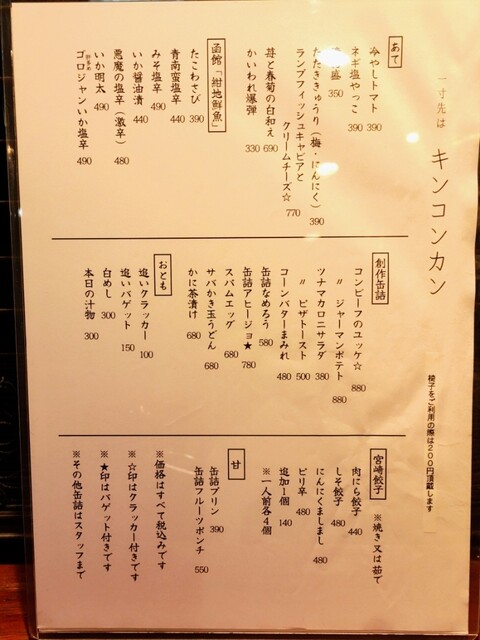 一寸先は
キンコンカン
椅子をご利用の際は200円頂戴します
あて
冷やしトマト 390
ネギ塩やっこ 390
盛 350
たたききゅうり(梅・にんにく) 390
ランプフィッシュキャビアと
クリームチーズ☆ 770
苺と春菊の白和え 690
かいわれ爆弾 330
函館「紺地鮮魚」
たこわさび 390
青南蛮塩辛 440
みそ塩辛 490
いか醤油漬 440
悪魔の塩辛(激辛) 480
いか明太 490
ゴロジャンいか塩辛 490
創作缶詰
コンビーフのユッケ☆ 880
〃 ジャーマンポテト 880
ツナマカロニサラダ 380
〃 ピザトースト 500
コーンバターまみれ 480
缶詰なめろう 580
缶詰アヒージョ★ 780
スパムエッグ 680
サバかき玉うどん 680
かに茶漬け 680
おとも
追いクラッカー 100
追いバゲット 150
白めし 300
本日の汁物 300
宮崎餃子 ※焼き又は茹で
肉にら餃子 440
しそ餃子 480
にんにくましまし 480
ピリ辛 480
追加1個 140
※一人前各4個
甘
缶詰プリン 390
缶詰フルーツポンチ 550
※価格はすべて税込みです
※☆印はクラッカー付きです
※★印はバゲット付きです
※その他缶詰はスタッフまで